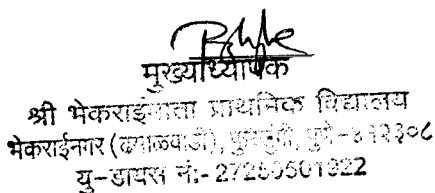 मुख्याध्यापक
श्री भेकराईमाता प्राथमिक विद्यालय
भेकराईनगर (ढमाळवाडी), फुरसुंगी, पुणे-४१२३०८
यु-डायस नं:- 27250501322